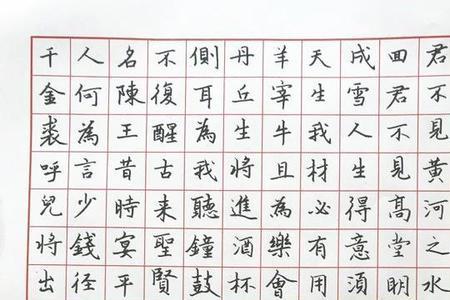 君不見黃河之水
回君不見高堂明
成雪人生得意須
天生我材必有用
羊宰牛且為樂會
丹丘生將進酒杯
側耳為我聽鐘鼓
不復醒古来聖賢
名陳王昔時宴平
人何為言少錢径
千金裘呼兒將出